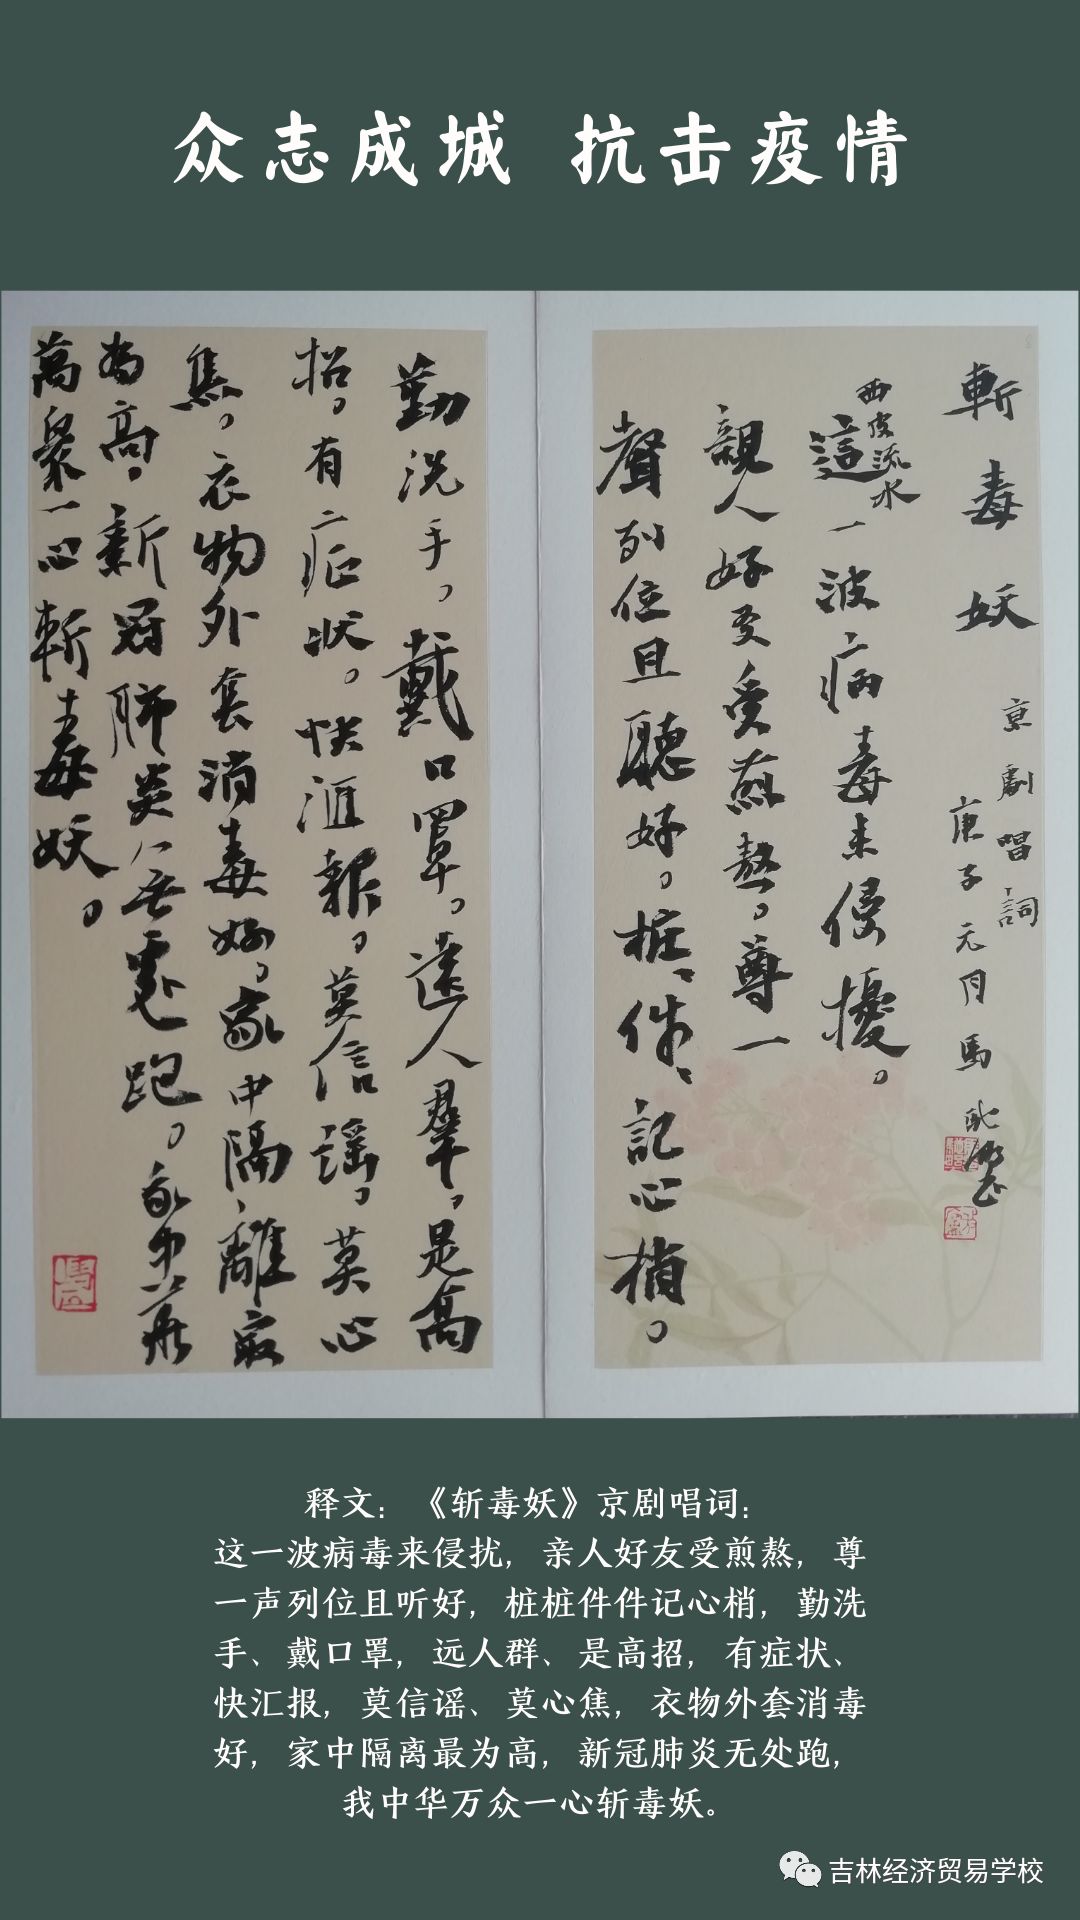 众志成城 抗击疫情
斬毒妖 京劇唱詞
庚子元月馬
西皮流水
這一波病毒来侵擾。
親人好友受煎熬。尊一
聲列位且聽好。桩、件、記心梢。
勤洗手。戴口罩。遠人群。是高
招。有症状。快滙報。莫信謡。莫心
焦。衣物外套消毒好。家中隔離最
为高。新冠肺炎无處跑。我中華
萬衆一心斬毒妖。
释文：《斩毒妖》京剧唱词：
这一波病毒来侵扰，亲人好友受煎熬，尊
一声列位且听好，桩桩件件记心梢，勤洗
手、戴口罩，远人群、是高招，有症状、
快汇报，莫信谣、莫心焦，衣物外套消毒
好，家中隔离最为高，新冠肺炎无处跑，
我中华万众一心斩毒妖。
吉林经济贸易学校